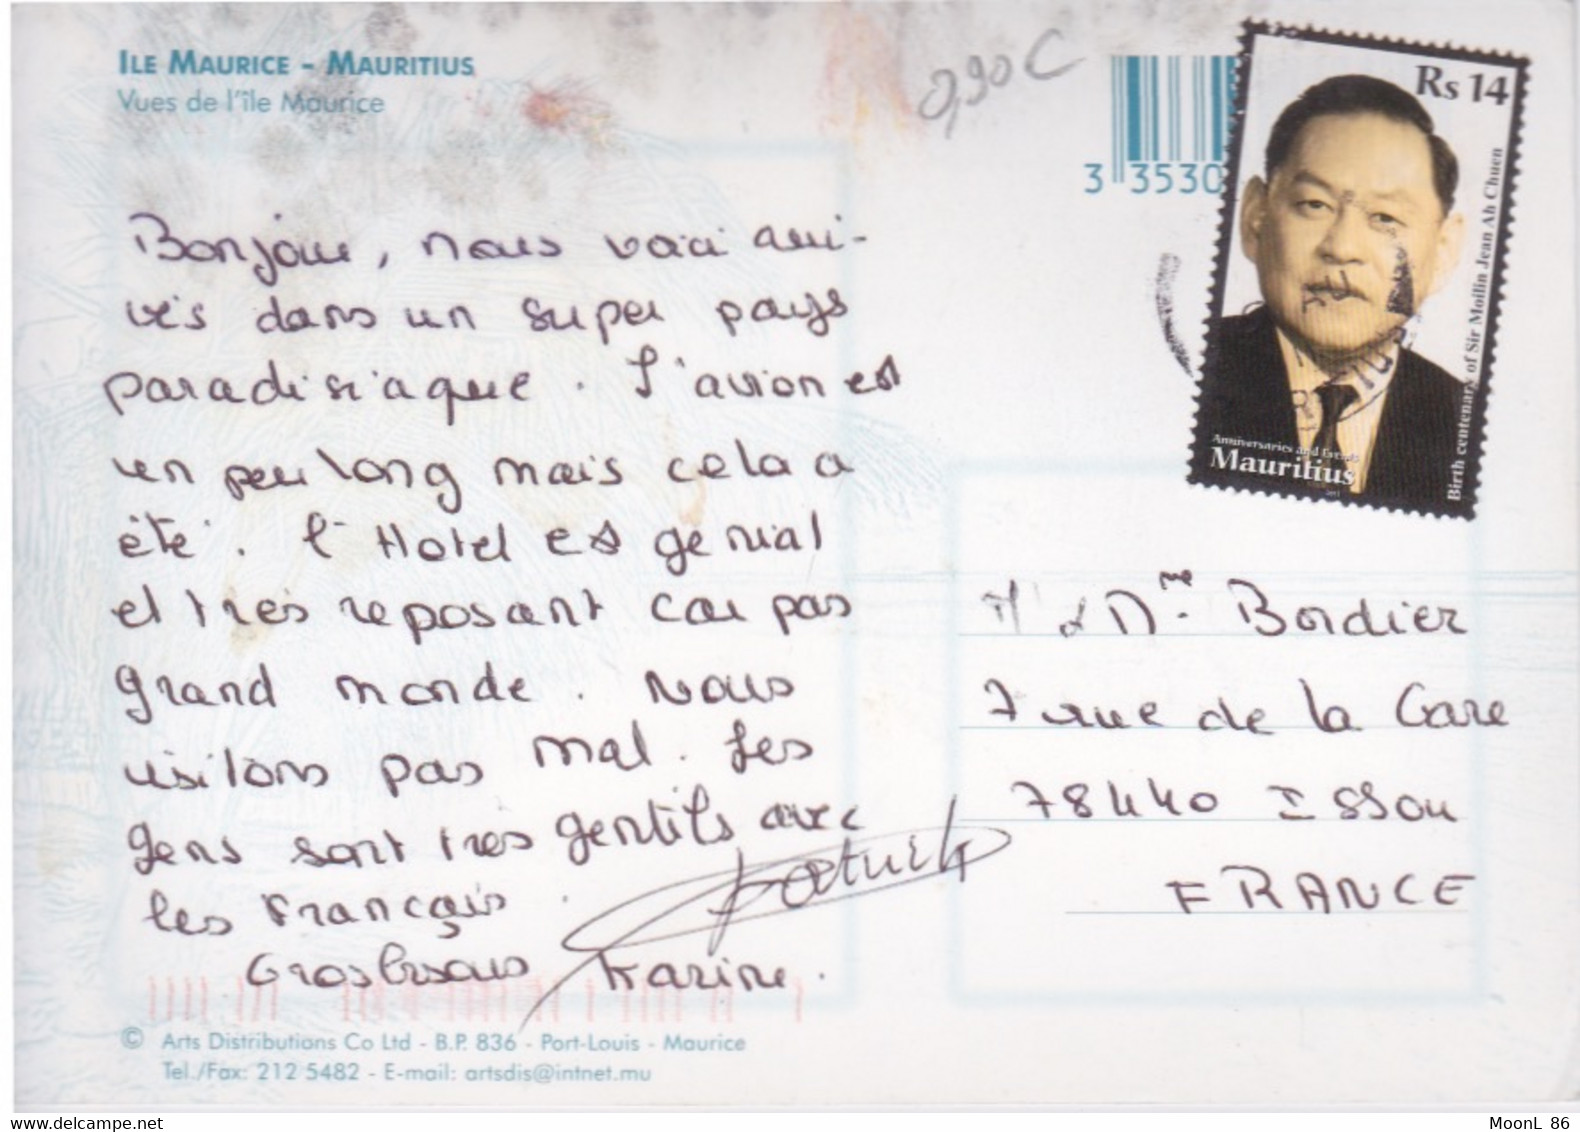 ILE MAURICE - MAURITIUS
Vues de l'île Maurice
0,90€
3 3530
Rs 14
Birth centenary of Sir Moilin Jean Ah Chuen
Anniversaries and Events
Mauritius
2011
Bonjour, nous voici arri-
vés dans un super pays
paradisiaque. L'avion est
un peu long mais cela a
été. l'Hotel est génial
et très reposant car pas
grand monde. Nous
visitons pas mal. Les
gens sont très gentils avec
les Français.
Gros bisous Karine.
Patrick
M & Mme Bordier
7 rue de la Gare
78440 Issou
FRANCE
© Arts Distributions Co Ltd - B.P. 836 - Port-Louis - Maurice
Tel./Fax: 212 5482 - E-mail: artsdis@intnet.mu
www.delcampe.net
MoonL 86